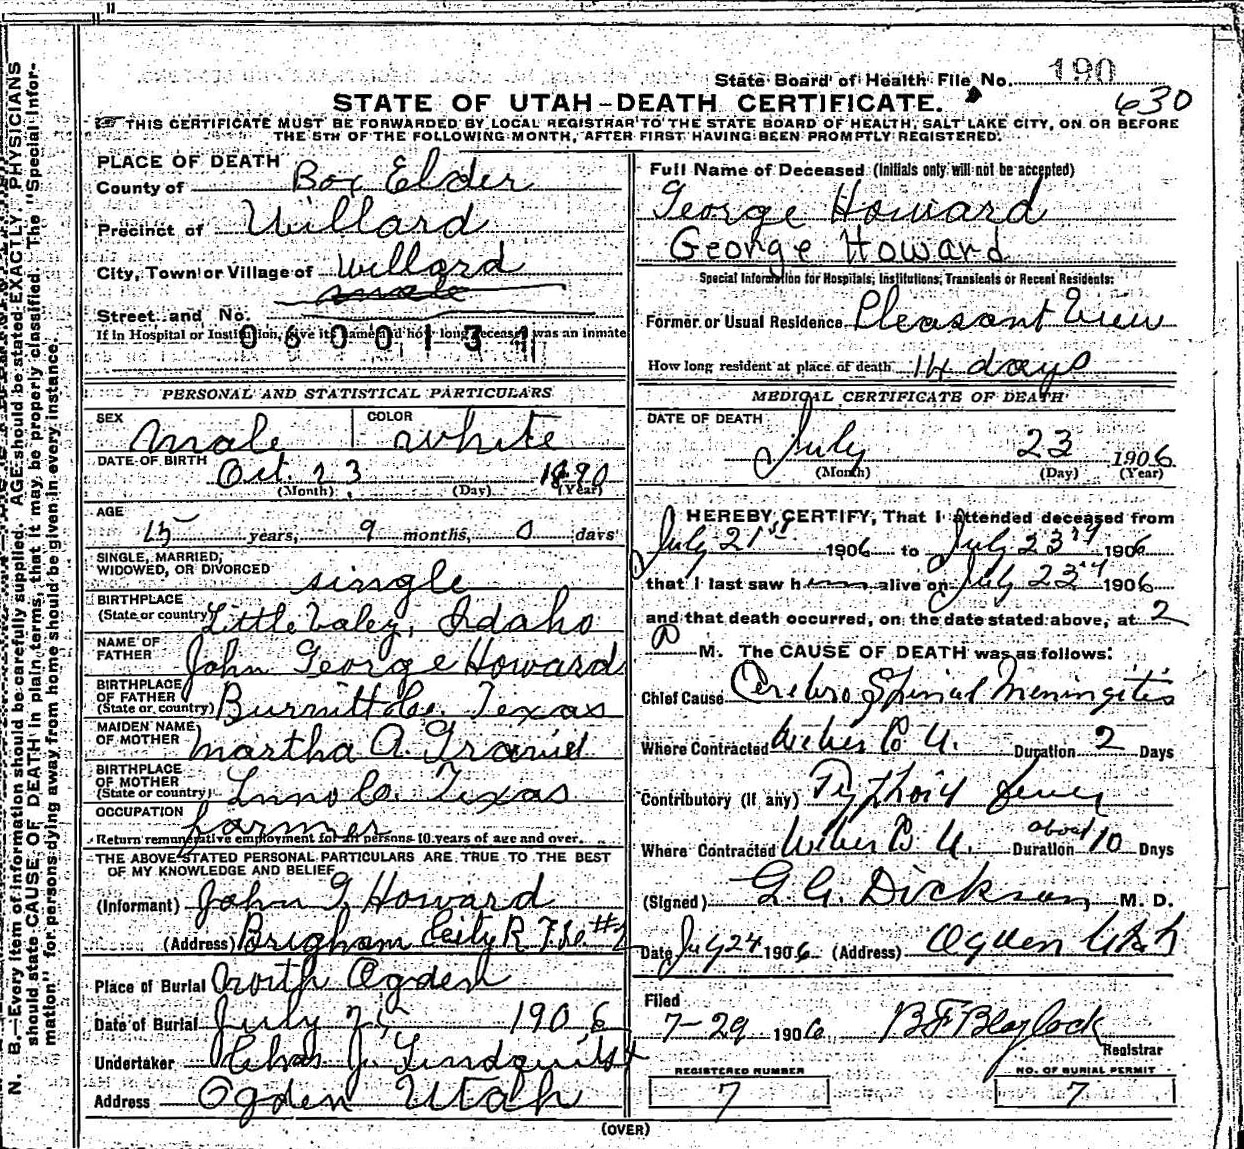 State Board of Health File No. 190
630
STATE OF UTAH-DEATH CERTIFICATE.
THIS CERTIFICATE MUST BE FORWARDED BY LOCAL REGISTRAR TO THE STATE BOARD OF HEALTH, SALT LAKE CITY, ON OR BEFORE
THE 5TH OF THE FOLLOWING MONTH, AFTER FIRST HAVING BEEN PROMPTLY REGISTERED.
PLACE OF DEATH
County of Box Elder
Precinct of Willard
City, Town or Village of Willard
male
Street and No.
If in Hospital or Institution, give its name and how long deceased was an inmate
0600131
PERSONAL AND STATISTICAL PARTICULARS
SEX Male COLOR White
DATE OF BIRTH Oct. 23 1890
(Month) (Day) (Year)
AGE
15 years, 9 months, 0 days
SINGLE, MARRIED,
WIDOWED, OR DIVORCED single
BIRTHPLACE
(State or country) Little Valey, Idaho
NAME OF
FATHER John George Howard
BIRTHPLACE
OF FATHER
(State or country) Burnitt Co. Texas
MAIDEN NAME
OF MOTHER Martha A.
BIRTHPLACE
OF MOTHER
(State or country) Co. Texas
OCCUPATION farmer
Return remunerative employment for all persons 10 years of age and over.
THE ABOVE STATED PERSONAL PARTICULARS ARE TRUE TO THE BEST
OF MY KNOWLEDGE AND BELIEF
(Informant) John G. Howard
(Address) Brigham City R.F.D. #2
Place of Burial North Ogden
Date of Burial July 25 1906
Undertaker Chas J. Lindquist
Address Ogden Utah
Full Name of Deceased (Initials only will not be accepted)
George Howard
George Howard
Special Information for Hospitals, Institutions, Transients or Recent Residents:
Former or Usual Residence Pleasant View
How long resident at place of death 14 days
MEDICAL CERTIFICATE OF DEATH
DATE OF DEATH
July 23 1906
(Month) (Day) (Year)
I HEREBY CERTIFY, That I attended deceased from
July 21st 1906 to July 23rd 1906
that I last saw him alive on July 23rd 1906
and that death occurred, on the date stated above, at 2
P M. The CAUSE OF DEATH was as follows:
Chief Cause Cerebro Spinal Meningitis
Where Contracted Weber Co U. Duration 2 Days
Contributory (if any) Typhoid fever
Where Contracted Weber Co U. Duration about 10 Days
(Signed) G. G. Dickson, M. D.
Date July 24 1906 (Address) Ogden Utah
Filed
7-29 1906 B F Blaylock
Registrar
REGISTERED NUMBER
7
NO. OF BURIAL PERMIT
7
(OVER)
N. B.—Every item of information should be carefully supplied. AGE should be stated EXACTLY. PHYSICIANS
should state CAUSE OF DEATH in plain terms, that it may be properly classified. The "Special Infor-
mation" for persons dying away from home should be given in every instance.